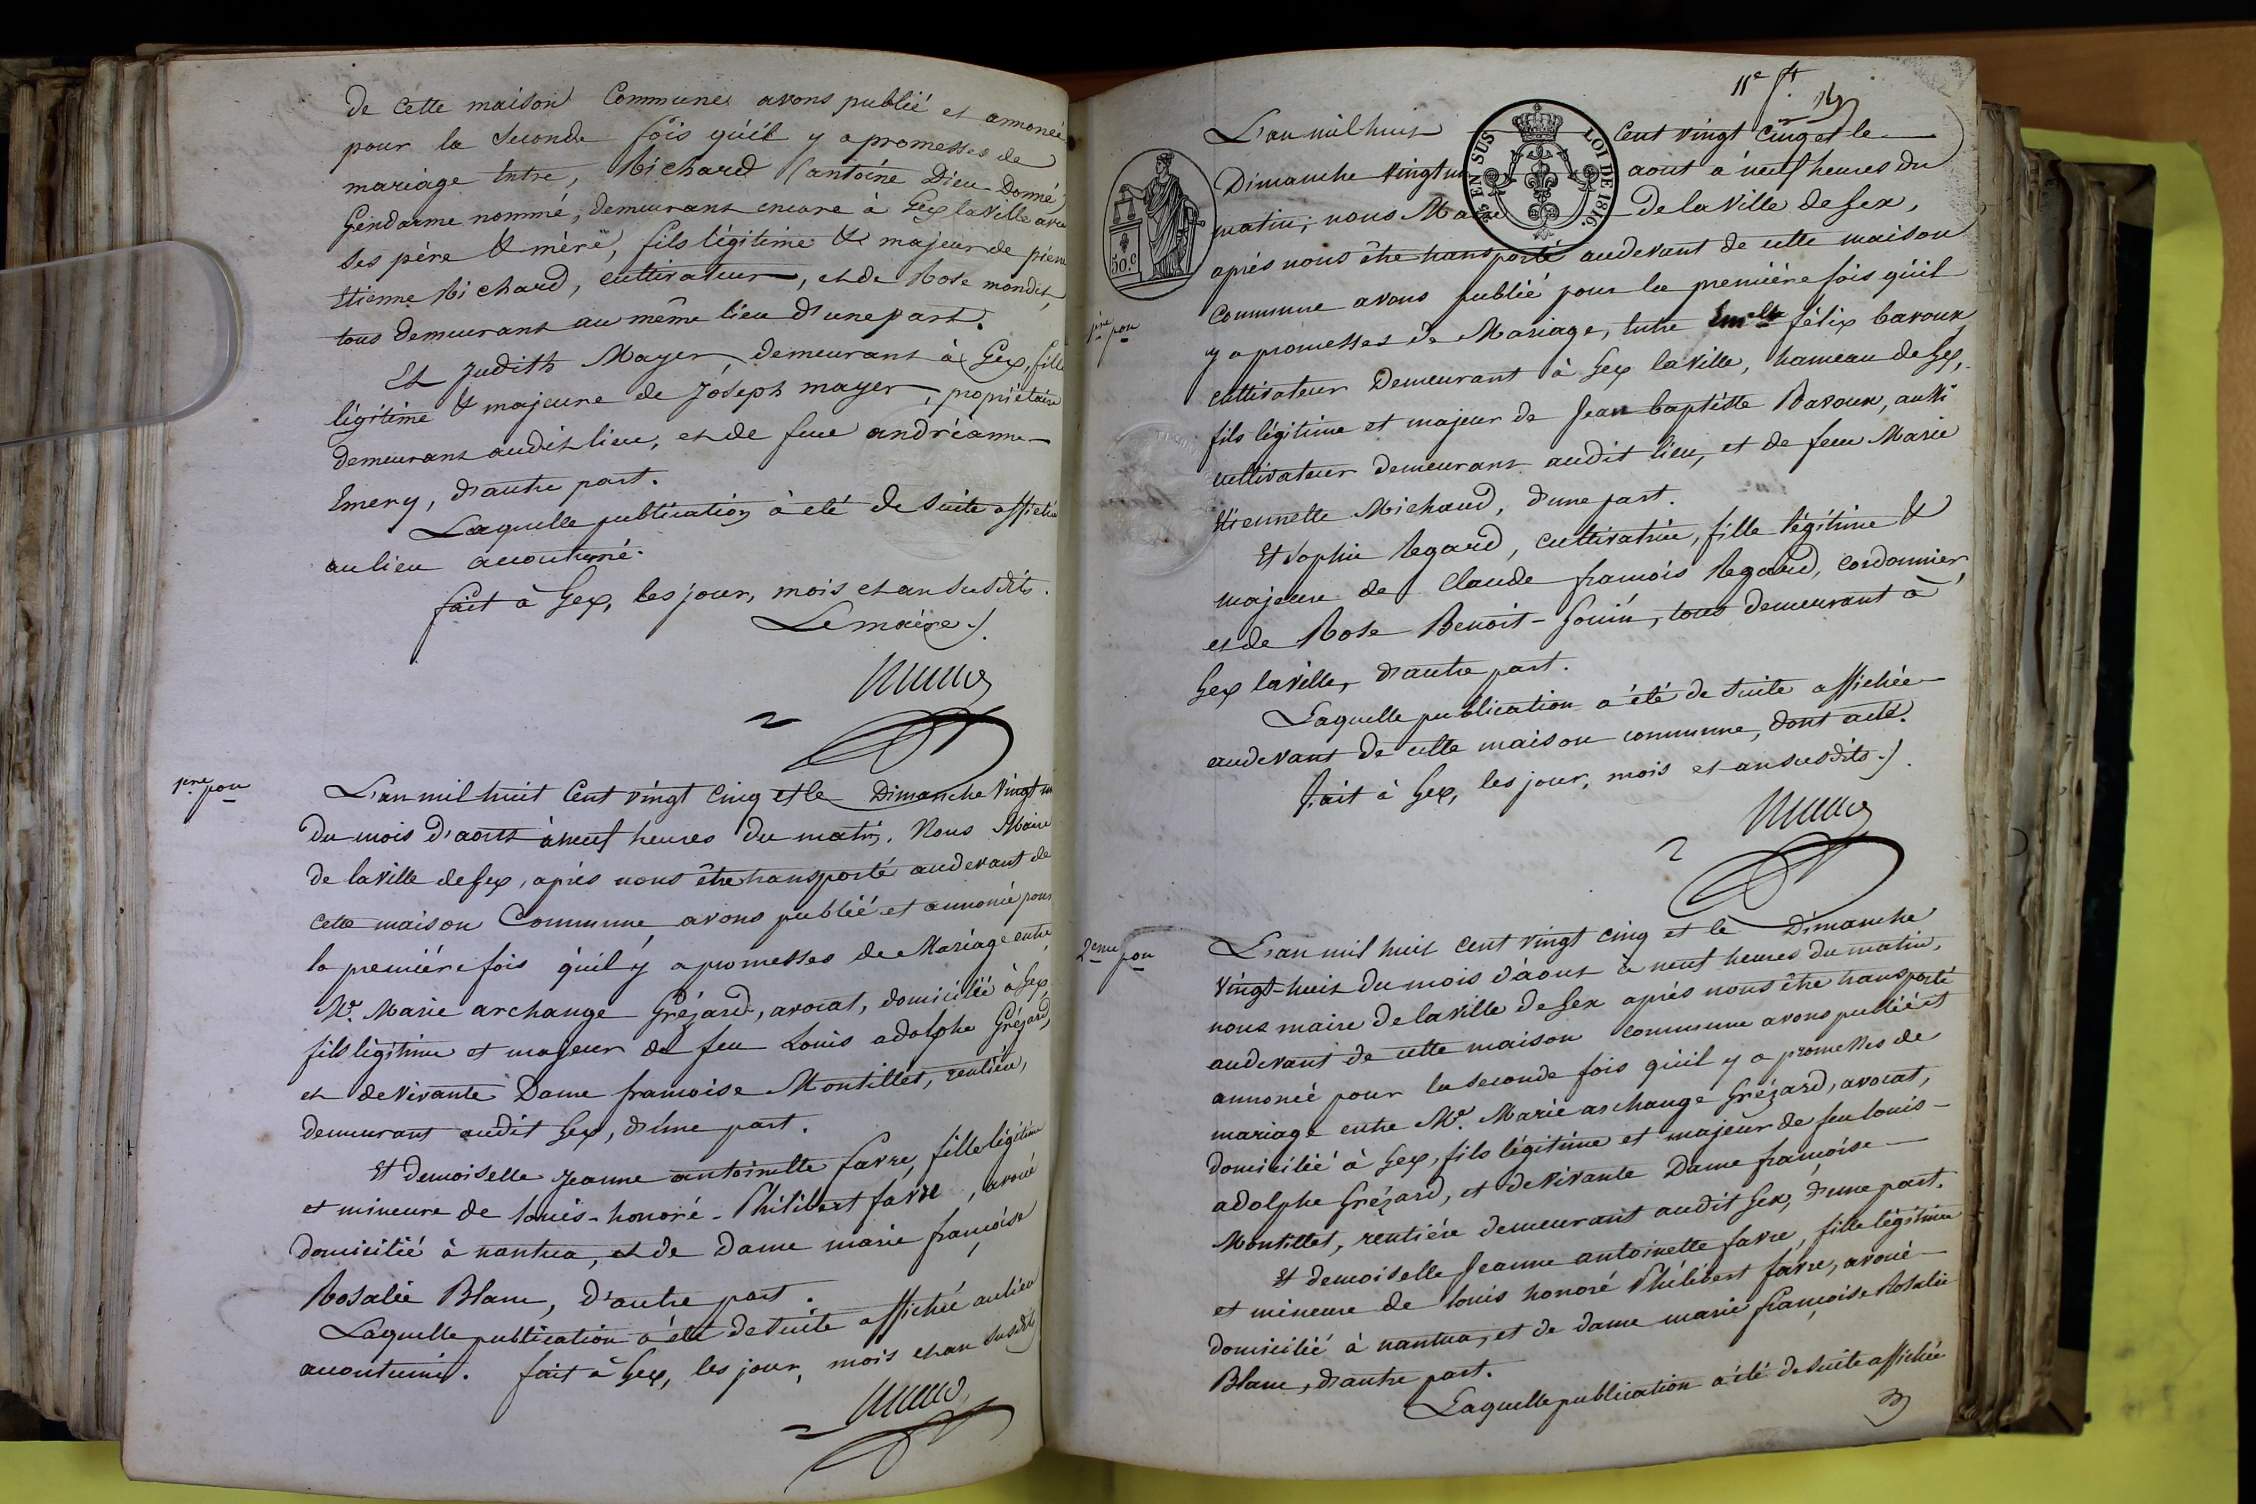 de cette maison Commune, avons publié et annoncé
pour la Seconde fois qu'il y a promesses de
mariage Entre, Richard (antoine Dieu Donné)
Gendarme nommé, demeurant encore à Gex la Ville avec
ses père & mère, fils légitime & majeur de pierre
Etienne Richard, cultivateur, et de Rose mondet,
tous demeurant au même lieu d'une part.
Et Judith Mayer, demeurant à Gex, fille
légitime & majeure de Joseph mayer, propriétaire
demeurant audit lieu, et de feue andréanne
Emery, d'autre part.
Laquelle publication à été de Suite affichée
au lieu accoutumé.
fait à Gex, les jour, mois et an susdits.
Le maire
1re pon
L'an mil huit Cent vingt Cinq et le Dimanche Vingt un
du mois d'aout à neuf heures du matin. Nous Maire
de la ville de Gex, après nous être transporté au devant de
cette maison Commune, avons publié et annoncé pour
la première fois qu'il y a promesses de Mariage entre
Mr. Marie archange Grézard, avocat, domicilié à Gex,
fils légitime et majeur de feu Louis adolphe Grézard,
et de vivante Dame françoise Montillet, rentière,
demeurant audit Gex, d'une part.
Et demoiselle Jeanne antoinette favre, fille légitime
et mineure de louis-honoré-Philibert favre, avoué
domicilié à nantua, et de Dame marie françoise
Rosalie Blanc, d'autre part.
Laquelle publication a été de Suite affichée au lieu
accoutumé. fait à Gex, les jour, mois et an susdits
11e ft.
L'an mil huit Cent vingt Cinq et le
Dimanche Vingt un aout à neuf heures du
matin, nous Maire de la Ville de Gex,
EN SUS
LOI DE 1816.
50.c
après nous être transporté au devant de cette maison
commune avons publié pour la première fois qu'il
1re pon
y a promesses de Mariage, Entre félix baroux
cultivateur Demeurant à Gex la Ville, hameau de Gex,
fils légitime et majeur de Jean baptiste Baroux, aussi
cultivateur demeurant audit lieu, et de feue Marie
Etiennette Michaud, d'une part.
Et Sophie Regard, cultivatrice, fille légitime &
majeure de Claude françois Regard, cordonnier,
et de Rose Benoit-Gonin, tous demeurant à
Gex la Ville, d'autre part.
Laquelle publication a été de Suite affichée
au devant de cette maison commune, dont acte.
fait à Gex, les jour, mois et an susdits.
2eme pon
L'an mil huit cent vingt cinq et le Dimanche
vingt-huit du mois d'aout à neuf heures du matin,
nous maire de la ville de Gex après nous être transporté
au devant de cette maison commune avons publié et
annoncé pour la seconde fois qu'il y a promesses de
mariage entre Mr. Marie archange Grézard, avocat,
domicilié à Gex, fils légitime et majeur de feu louis-
adolphe Grézard, et de vivante Dame françoise
Montillet, rentière demeurant audit Gex, d'une part.
Et demoiselle Jeanne antoinette favre, fille légitime
et mineure de louis honoré Philibert favre, avoué
domicilié à nantua, et de dame marie françoise Rosalie
Blanc, d'autre part.
Laquelle publication a été de Suite affichée